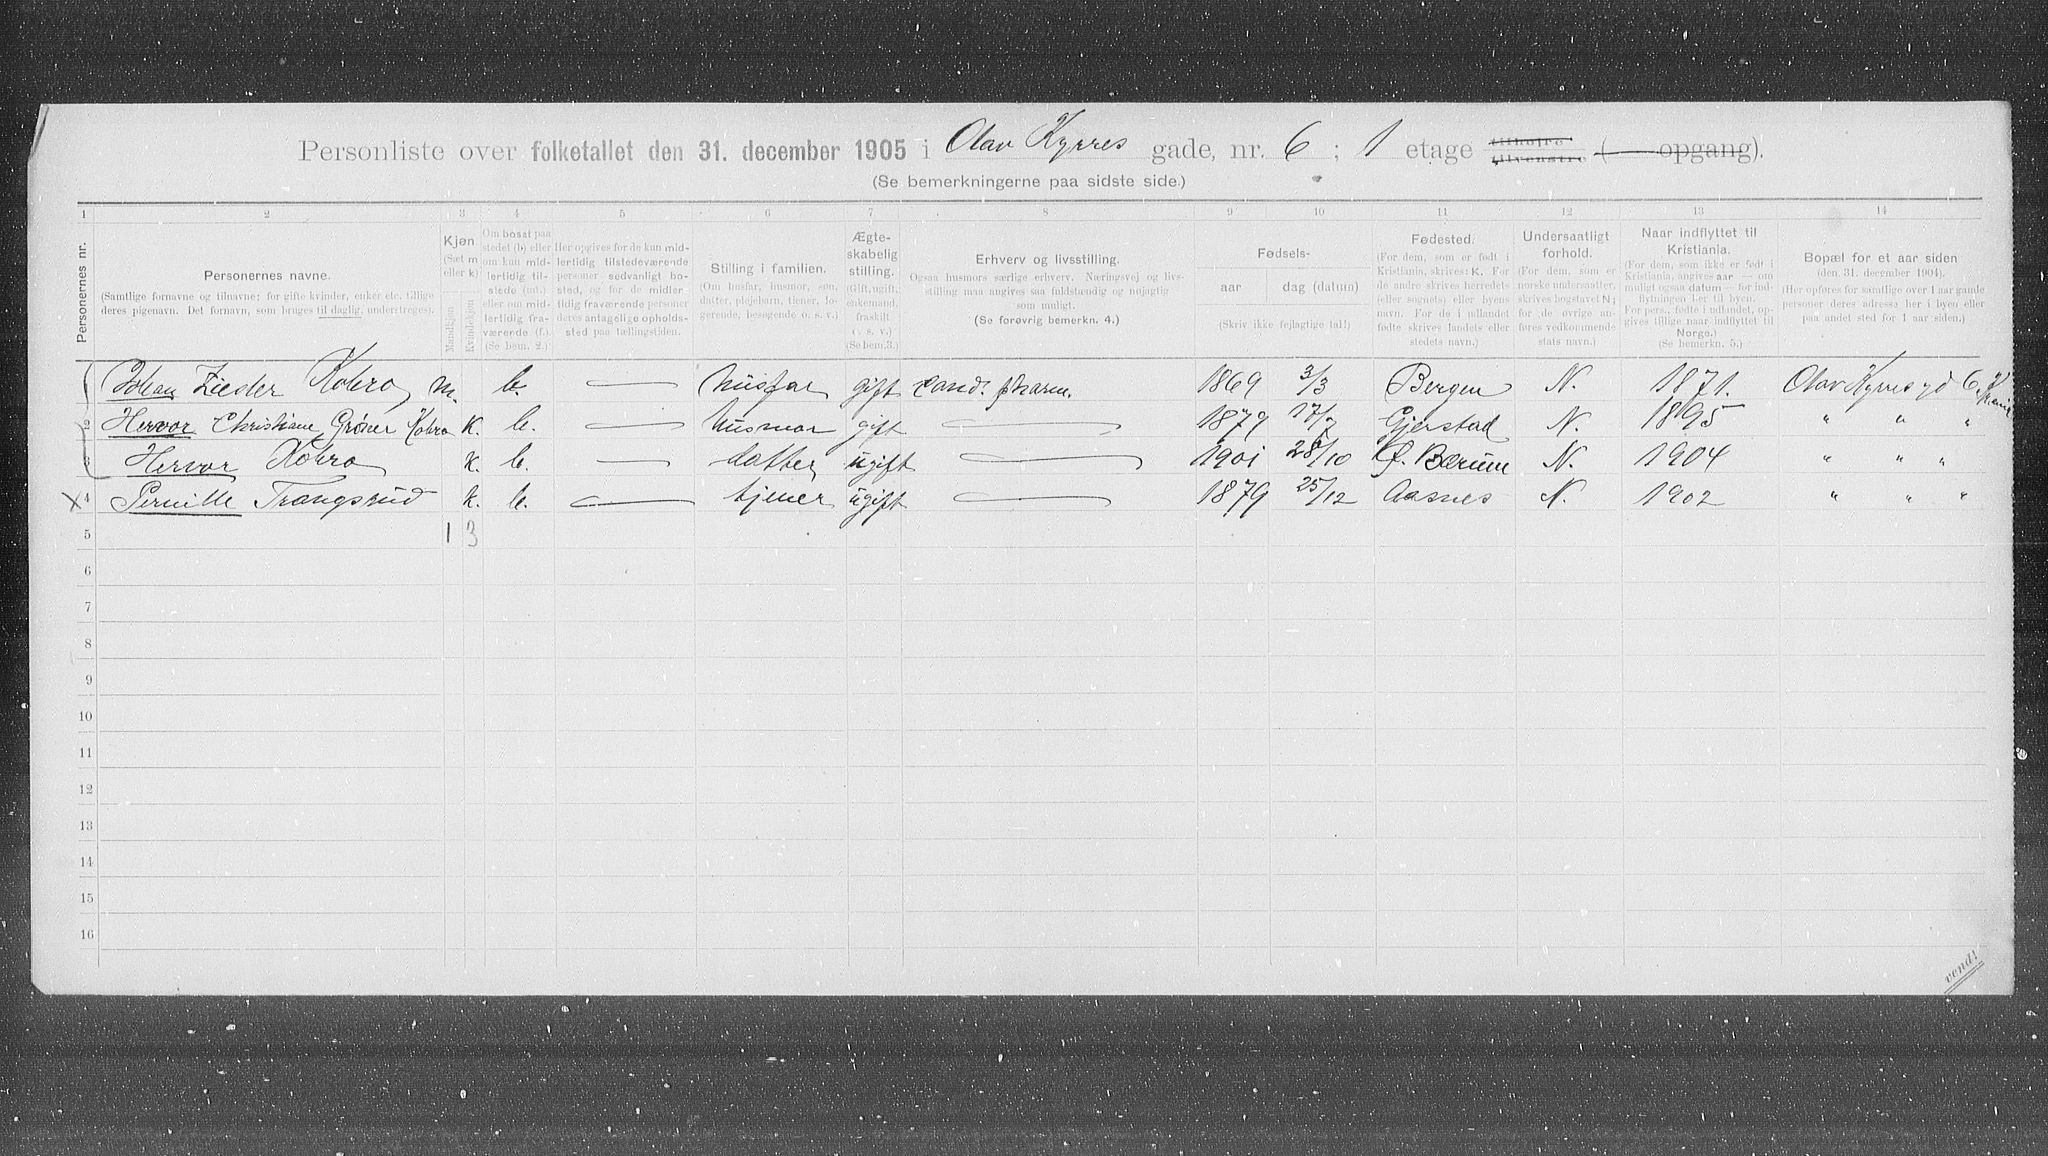 Personliste over folketallet den 31. december 1905 i Olav Kyrres gade, nr. 6 ; 1 etage tilhøire tilvenstre ( opgang).
(Se bemerkningerne paa sidste side.)
1 2 3 4 5 6 7 8 9 10 11 12 13 14
Personernes nr.
Personernes navne.
(Samtlige fornavne og tilnavne; for gifte kvinder, enker etc. tillige
deres pigenavn. Det fornavn, som bruges til daglig, understreges).
Kjøn
(Sæt m
eller k)
Mandkjøn
Kvindekjøn
Om bosat paa
stedet (b) eller
om kun mid-
lertidig til-
stede (mt.)
eller om mid-
lertidig fra-
værende (f.).
(Se bem. 2.)
Her opgives for de kun mid-
lertidig tilstedeværende
personer sedvanlig bo-
sted, og for de midler-
tidig fraværende personer
deres antagelige opholds-
sted paa tællingstiden.
Stilling i familien.
(Om husfar, husmor, søn,
datter, plejebarn, tjener, lo-
gerende, besøgende o. s. v.)
Ægte-
skabelig
stilling.
(Gift, ugift,
enkemand,
fraskilt
o. s. v.)
(Se bem. 3.)
Erhverv og livsstilling.
Ogsaa husmors særlige erhverv. Næringsvej og livs-
stilling maa angives saa fuldstændig og nøjagtig
som muligt.
(Se forøvrig bemerkn. 4.)
Fødsels-
aar dag (datum)
(Skriv ikke fejlagtige tal!)
Fødested.
(For dem, som er født i
Kristiania, skrives: K. For
de andre skrives herredets
(eller sognets) eller byens
navn. For de i udlandet
fødte skrives landets eller
stedets navn.)
Undersaatligt
forhold.
(For dem, som er
norske undersaatter,
skrives bogstavet N;
for de øvrige an-
føres vedkommende
stats navn.)
Naar indflyttet til
Kristiania.
(For dem, som ikke er født i
Kristiania, angives aar — om
muligt ogsaa datum — for ind-
flytningen her til byen.
For pers., fødte i udlandet, op-
gives tillige naar indflyttet til
Norge.)
(Se bemerkn. 5.)
Bopæl for et aar siden
(den 31. december 1904).
(Her opføres for samtlige over 1 aar gamle
personer deres adresse her i byen eller
paa andet sted for 1 aar siden.)
Johan Zieder Kobro m. b. — husfar gift cand. pharm. 1869 3/3 Bergen N. 1871. Olav Kyrres gd 6
2 Hervor Christiane Grøner Kobro K. b. — husmor gift — 1879 17/7 Gjerstad N. 1895 " " "
3 Hervor Kobro k. b. — datter ugift — 1901 28/10 Ø. Bærum N. 1904 " " "
x 4 Pernille Trangsrud k. b. — tjener ugift — 1879 25/12 Aasnes N. 1902 " " "
5 1 3
6
7
8
9
10
11
12
13
14
15
16
vend!